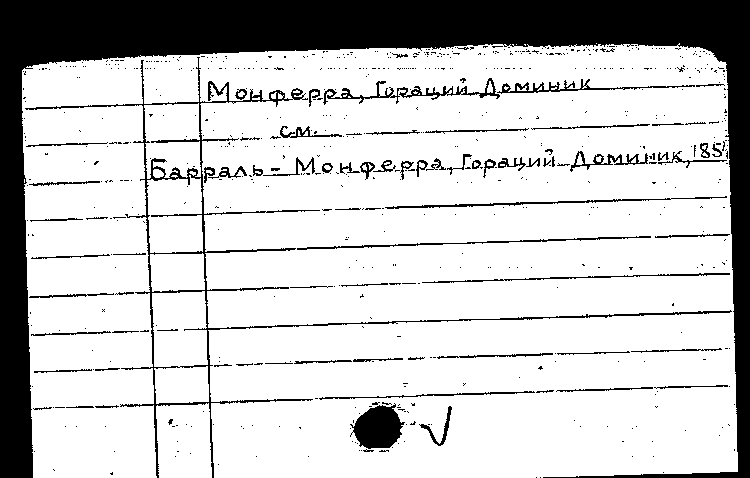 Монферра, Гораций Доминик
см.
Барраль - Монферра, Гораций Доминик, 185